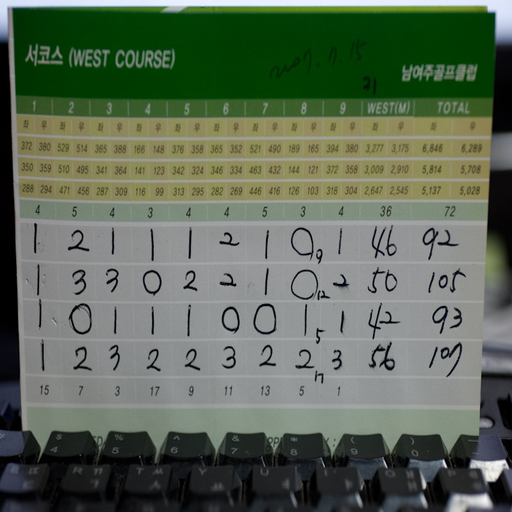 서코스 (WEST COURSE)
2007. 7. 15
남여주골프클럽
21
1 2 3 4 5 6 7 8 9 WEST(M) TOTAL
좌 우 좌 우 좌 우 좌 우 좌 우 좌 우 좌 우 좌 우 좌 우 좌 우 좌 우
372 380 529 514 365 388 166 148 376 358 365 352 521 490 189 165 394 380 3,277 3,175 6,846 6,289
350 359 510 495 341 364 141 123 342 324 346 334 463 432 144 121 372 358 3,009 2,910 5,814 5,708
288 294 471 456 287 309 116 99 313 295 282 269 446 416 126 103 318 304 2,647 2,545 5,137 5,028
4 5 4 3 4 4 5 3 4 36 72
1 2 1 1 1 2 1 0 9 1 46 92
1 3 3 0 2 2 1 0 12 2 50 105
1 0 1 1 1 0 0 1 5 1 42 93
1 2 3 2 2 3 2 2 17 3 56 107
15 7 3 17 9 11 13 5 1